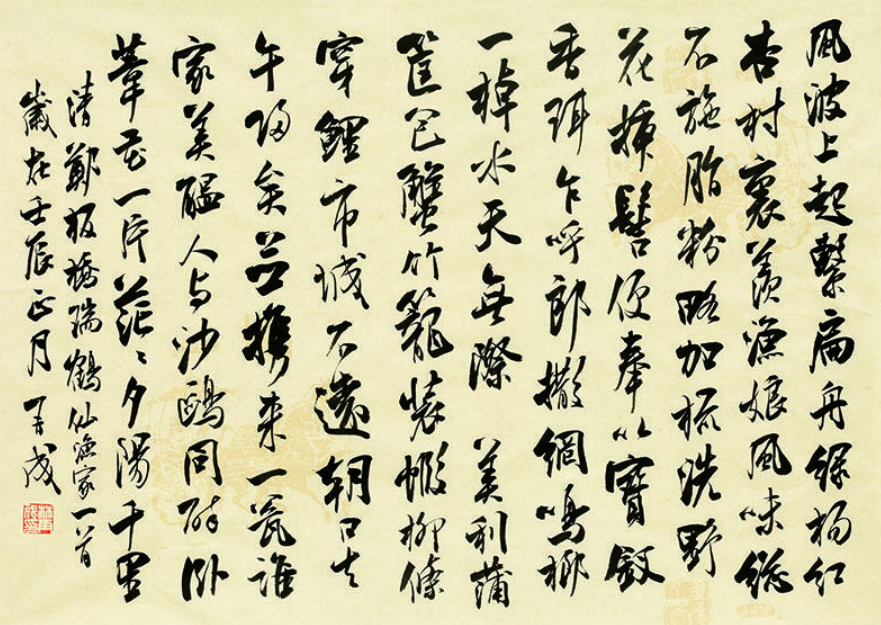 風波上起繫扁舟綠楊紅
杏村裏羨漁娘風味總
不施脂粉略加梳洗野
花插髻便奉似寶釵
香珥乍呼郎撒網鳴榔
一棹水天無際　美利蒲
筐包蟹竹籠裝蝦柳條
穿鯉市城不遠朝日去
午歸矣並攜來一瓮誰
家美醞人與沙鷗同醉臥
葦花一片茫茫夕陽千里
清鄭板橋瑞鶴仙漁家一首
歲在壬辰正月